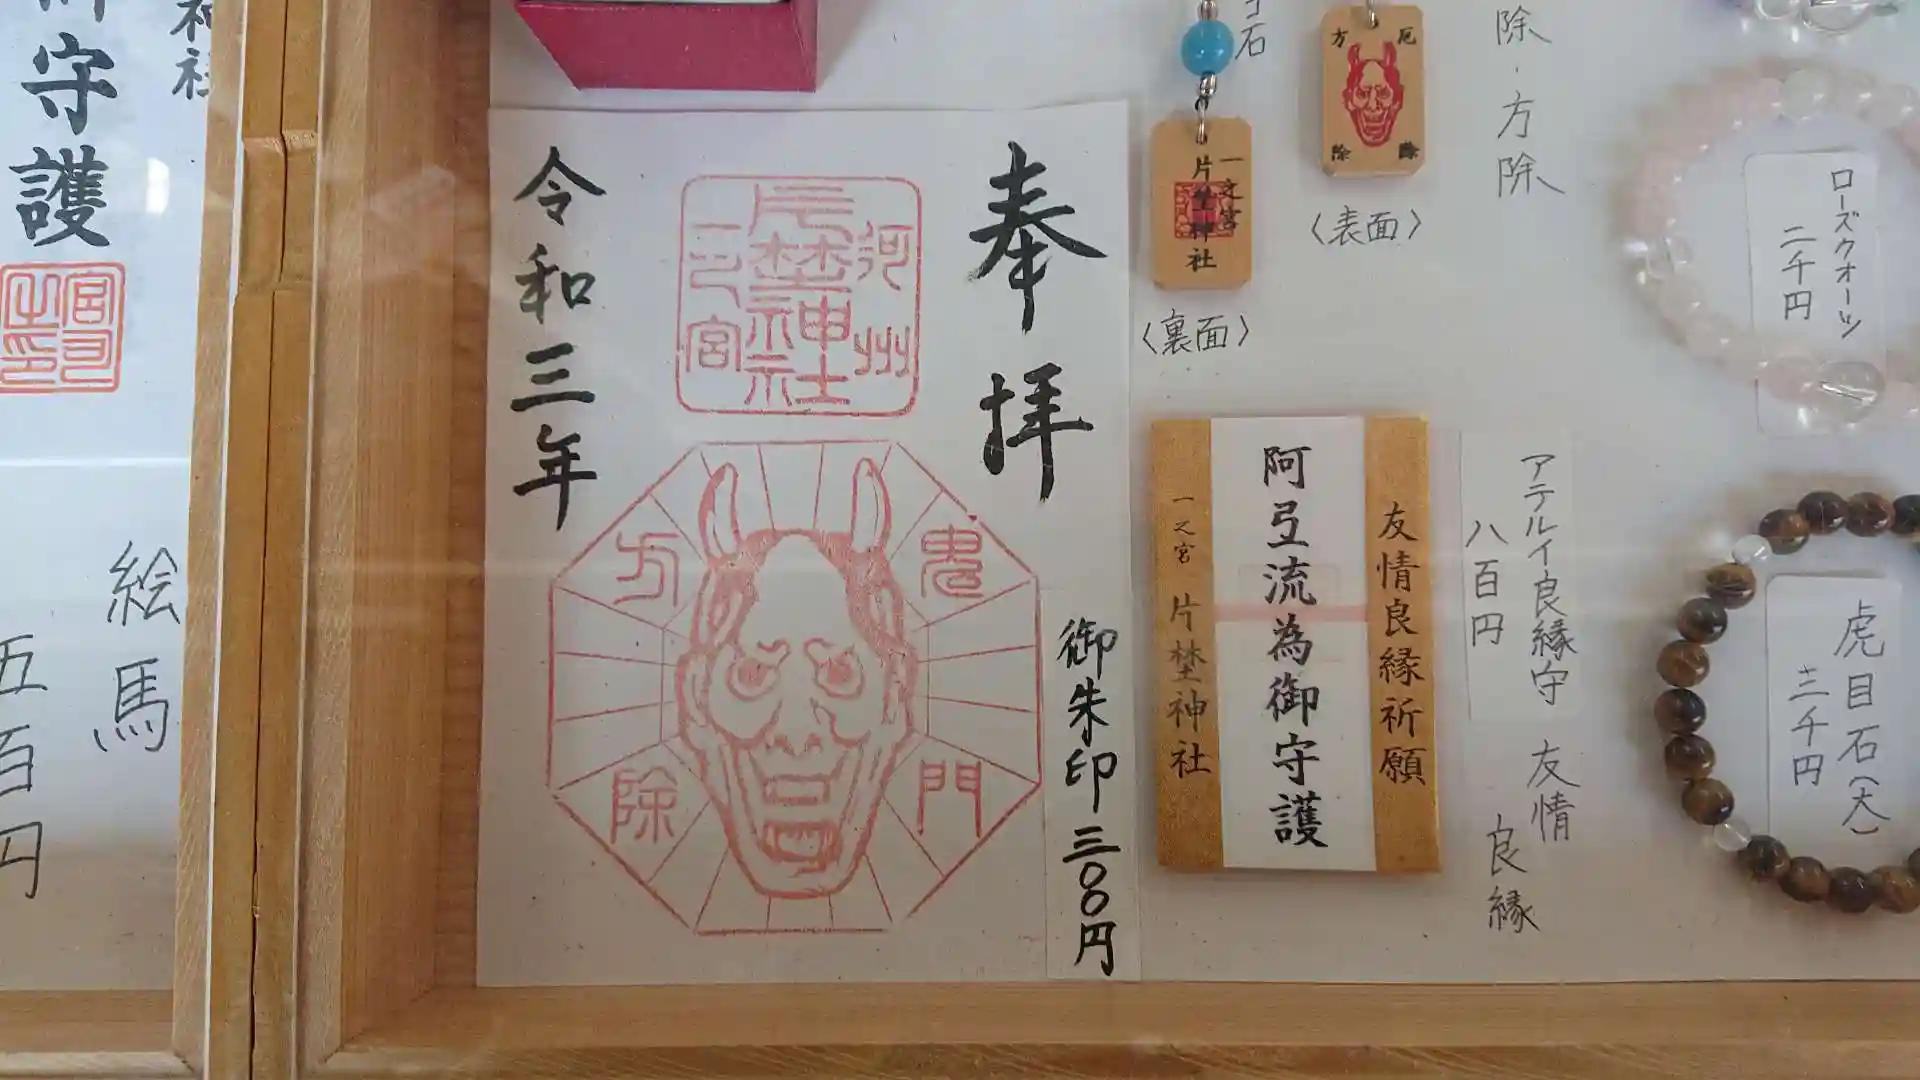 神社
御守護
宮司之印
絵馬
五百円
奉拝
河州
片埜神社
一之宮
令和三年
鬼門
方除
御朱印三〇〇円
石
一之宮
片埜神社
〈裏面〉
厄除
方除
〈表面〉
除・方除
友情良縁祈願
阿弖流為御守護
一之宮 片埜神社
アテルイ良縁守 友情
良縁
八百円
ローズクオーツ
二千円
虎目石(大)
三千円